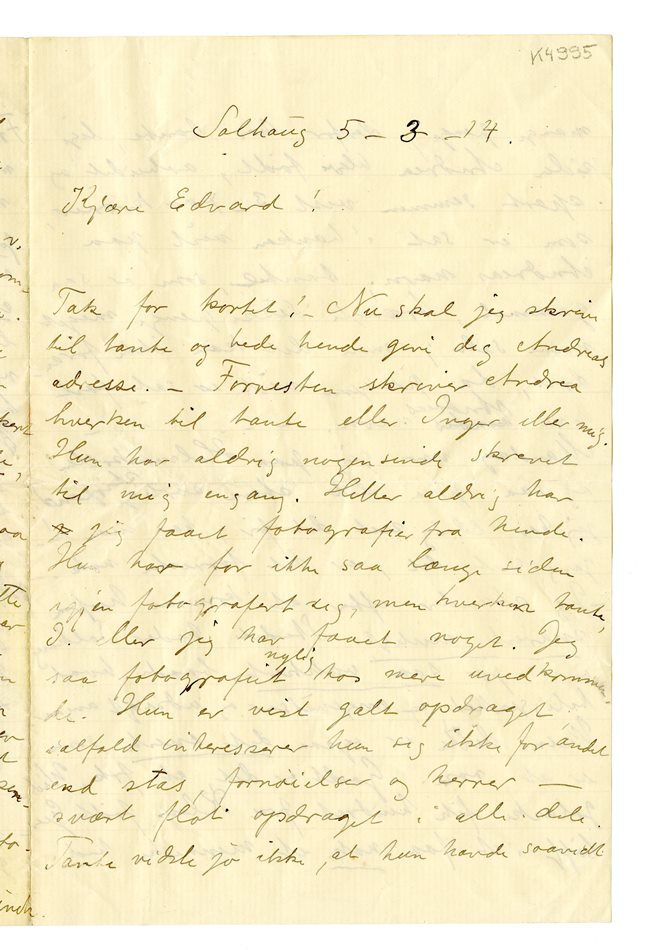 K4995
Solhaug 5 - 3 - 14.
Kjære Edvard!
Tak for kortet! - Nu skal jeg skrive
til tante og bede hende give dig Andreas
adresse. - Forresten skriver Andrea
hverken til tante eller Inger eller mig.
Hun har aldrig nogensinde skrevet
til mig engang. Heller aldrig har
jeg faaet fotografier fra hende.
Hun har for ikke saa længe siden
igjen fotografert sig, men hverken tante,
I. eller jeg har faaet noget. Jeg
nylig
saa fotografiet hos mere uvedkommen-
de. Hun er vist galt opdraget
ialfald interesserer hun sig ikke for andet
end stas, fornøielser og herrer —
svært flot opdraget i alle dele.
Tante vidste jo ikke, at hun havde saavidt